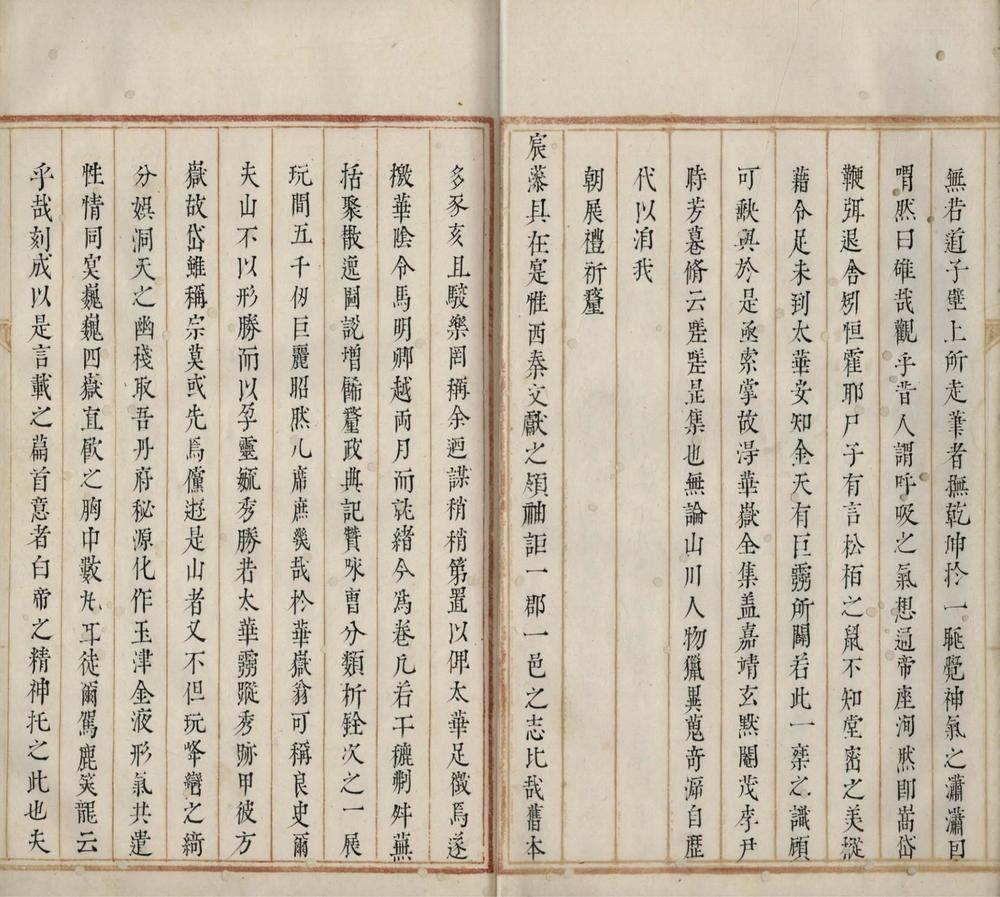 無若道子壁上所走筆者撫乾坤扵一眺覺神氣之瀟瀟曰
喟然曰碓哉觀乎昔人謂呼吸之氣想通帝座洵然即嵩岱
鞭弭退舍矧恒霍耶尸子有言松栢之鼠不知堂密之美樅
藉令足未到太華安知金天有巨靈所闢若此一柰之識頋
可軼與於是亟索掌故淂華嶽全集盖嘉靖玄黓閹茂李尹
時芳蒐脩云嗟嗟是集也無論山川人物獵異蒐竒源自歴
代以洎我
朝展禮祈釐
宸藻具在寔惟西秦文獻之領袖詎一郡一邑之志比哉舊本
多豕亥且駁樂罔稱余廼謀稍稍第置以俾太華足徵焉遂
檄華陰令馬明卿越兩月而詵緖今為卷凡若干穮剃舛蕪
括聚散逸圖説増餙釐政典記贊咏曹分類析銓次之一展
玩間五千仞巨麗昭然几席庶幾哉扵華嶽翁可稱良史爾
夫山不以形勝而以孕靈毓秀勝若太華靈蹤秀跡甲彼方
嶽故岱雖稱宗莫或先焉儻遊是山者又不但玩峰巒之綺
分娯洞天之幽棧取吾丹府秘源化作玉津金液形氣共遣
性情同㝠巍巍四嶽直歕之胸中數丸耳徒爾駕鹿笑龍云
乎哉刻成以是言載之篇首意者白帝之精神托之此也夫